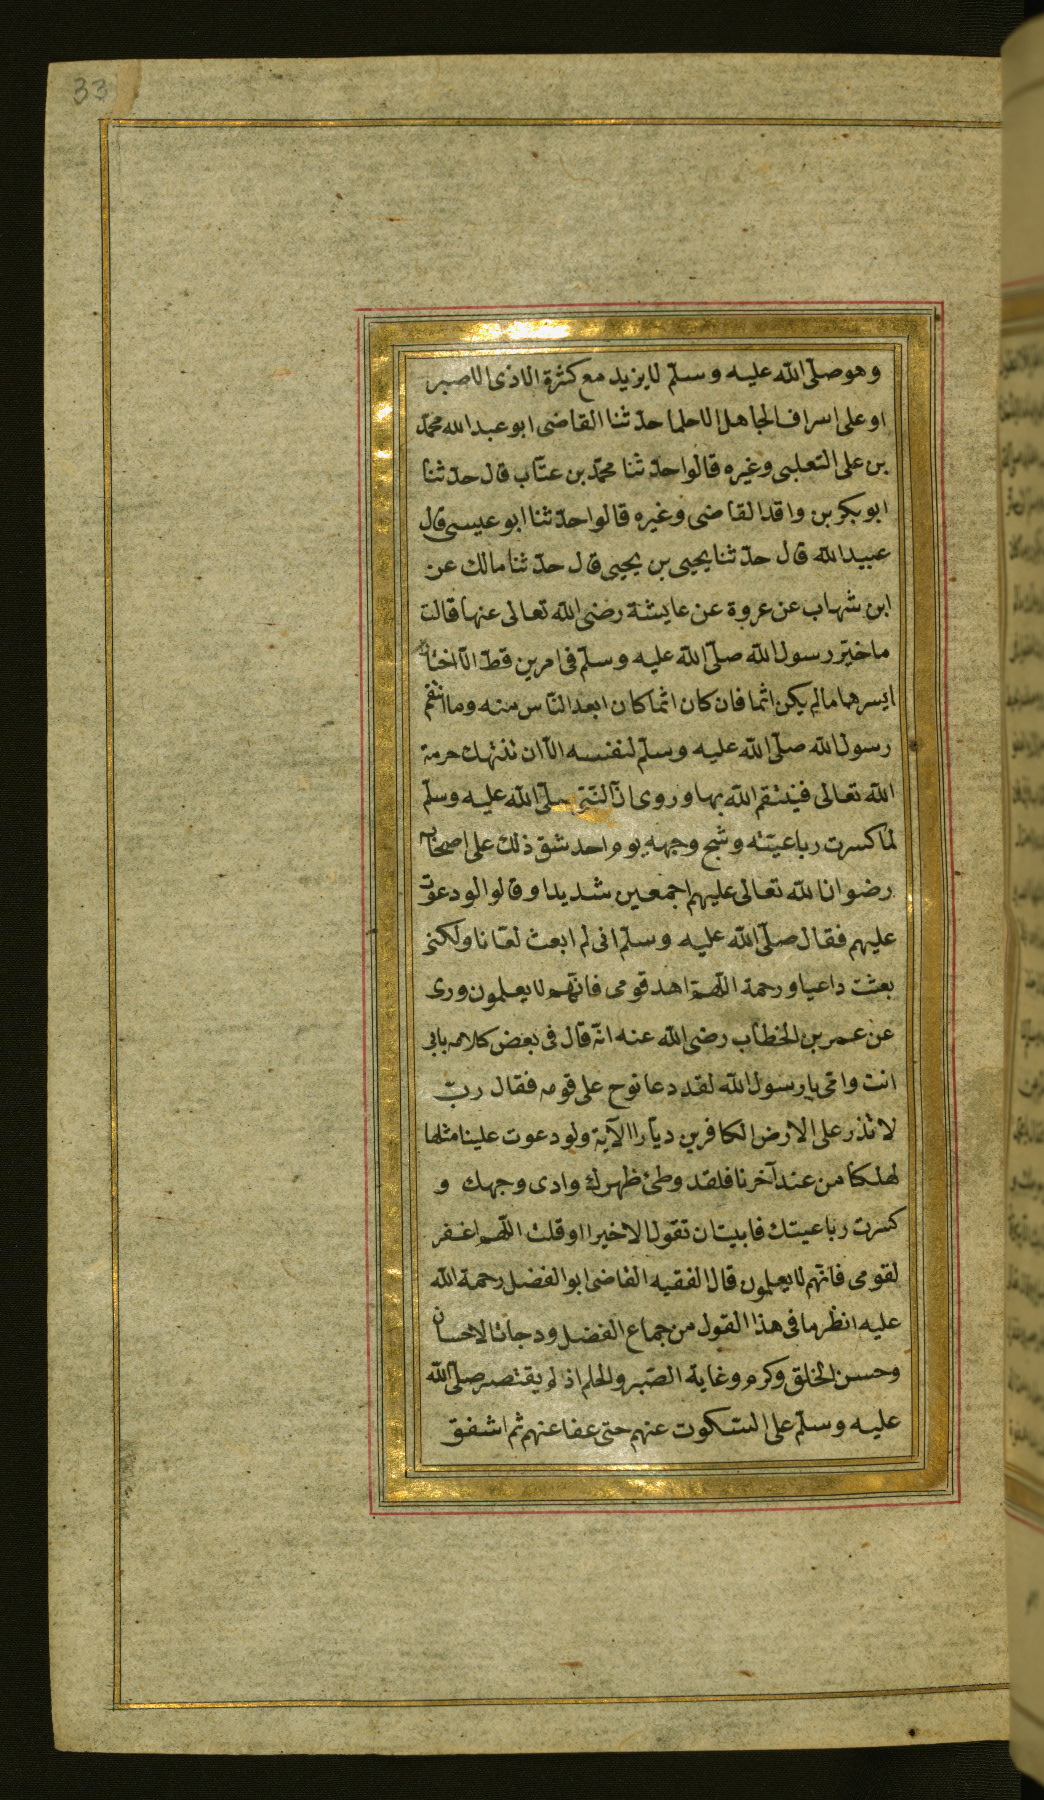 33
وهو صلّى الله عليه وسلّم لا يزيد مع كثرة الاذى الا صبر
او على اسراف الجاهل الا حلما حدّثنا القاضى ابو عبد الله محمّد
بن على التعلبى وغيره قالوا حدّثنا محمّد بن عتّاب قال حدّثنا
ابو بكر بن واقد القاضى وغيره قالوا حدّثنا ابو عيسى قال
عبيد الله قال حدّثنا يحيى بن يحيى قال حدّثنا مالك عن
ابن شهاب عن عروة عن عايشة رضى الله تعالى عنها قالت
ما خيّر رسول الله صلّى الله عليه وسلّم فى امرين قطّ الّا اختار
ايسرهما ما لم يكن اثما فان كان اثما كان ابعد النّاس منه وما انتقم
رسول الله صلّى الله عليه وسلّم لنفسه الّا ان تنتهك حرمة
الله تعالى فينتقم الله بها وروى انّ النّبّى صلّى الله عليه وسلّم
لما كسرت رباعيته وشج وجهه يوم احد شق ذلك على اصحابه
رضوان الله تعالى عليهم اجمعين شديدا وقالوا لو دعوت
عليهم فقال صلّى الله عليه وسلّم انى لم ابعث لعّانا ولكنى
بعثت داعيا ورحمة اللّهمّ اهد قومى فانّهم لا يعلمون وروى
عن عمر بن الخطاب رضى الله عنه انّه قال فى بعض كلامه بابى
انت وامّى يا رسول الله لقد دعا نوح على قومه فقال ربّ
لا تذر على الارض الكافرين ديّارا الآية ولو دعوت علينا مثلها
لهلكنا من عند آخرنا فلقد وطئ ظهرك وادى وجهك و
كسرت رباعيتك فابيت ان تقول الا خيرا وقلت اللّهمّ اغفر
لقومى فانّهم لا يعلمون قال الفقيه القاضى ابو الفضل رحمة الله
عليه انظر ما فى هذا القول من جماع الفضل ودرجات الاحسان
وحسن الخلق وكرم وغاية الصّبر والحلم اذ لم يقتصر صلّى الله
عليه وسلّم على السّكوت عنهم حتى عفا عنهم ثم اشفق